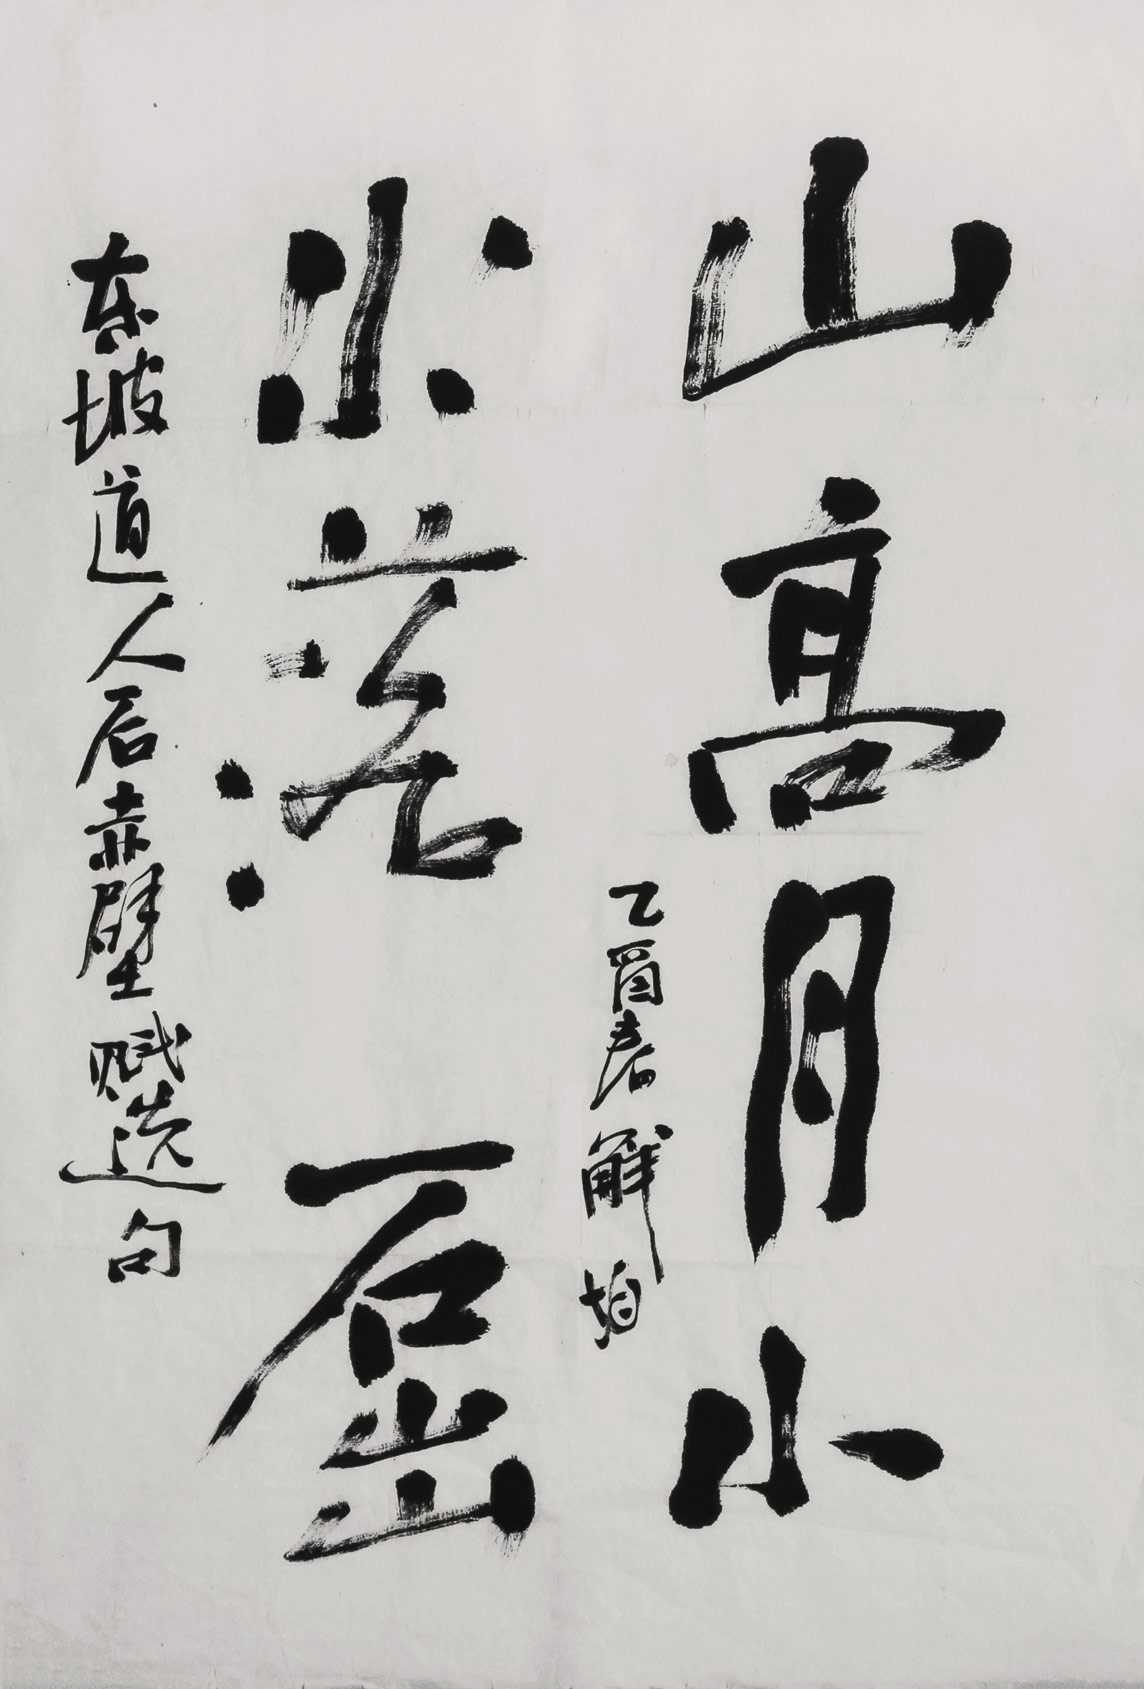 山高月小
水落石出
东坡道人后赤壁赋选句
乙酉春解